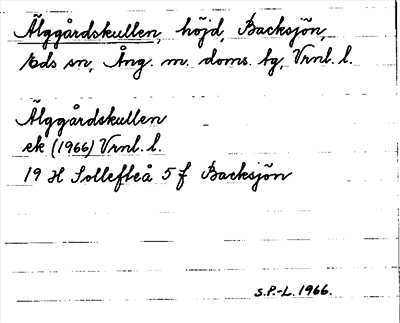 Älggårdskullen, höjd, Backsjön,
Eds sn, Ång. m. doms. bg, Vrnl. l.
Älggårdskullen
ek (1966) Vrnl. l.
19 H Sollefteå 5 f Backsjön
S.P.-L. 1966.